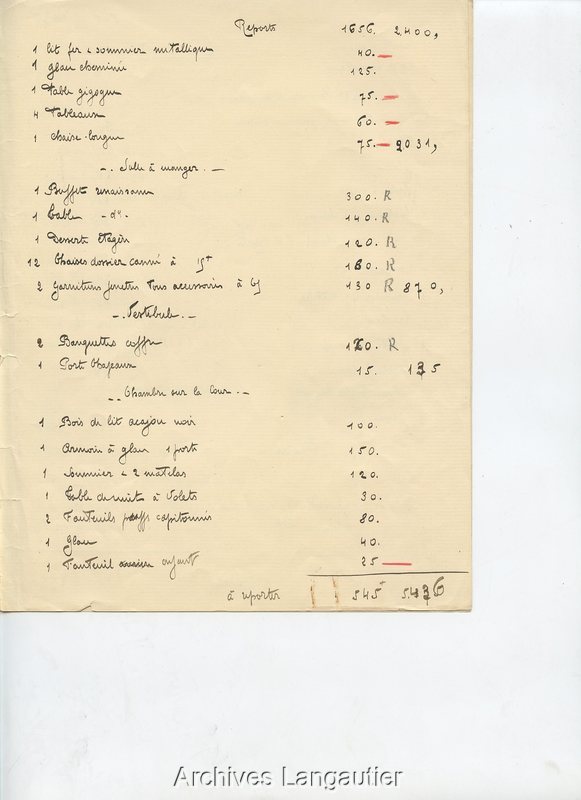 Reports 1656. 2400,
1 lit fer & sommier métallique 40.
1 glace cheminée 125.
1 Table gigogne 75.
4 Tableaux 60.
1 chaise-longue 75. 2031,
-. Salle à manger. -
1 Buffet renaissance 300. R
1 Table -do- 140. R
1 Desserte Etagère 120. R
12 Chaises dossier canné à 15f 180. R
2 garnitures fenetres tous accessoires à 65 130 R 870,
-. Vestibule. -
2 Banquettes coffre 120. R
1 Porte Chapeaux 15. 135
-. Chambre sur la Cour. -
1 Bois de lit acajou noir 100.
1 Armoire à glace 1 porte 150.
1 Sommier & 2 matelas 120.
1 Table de nuit à Volets 30.
2 Fauteuils poffs capitonnés 80.
1 glace 40.
1 Fauteuil enfant 25
à reporter 545 5.436
Archives Langautier